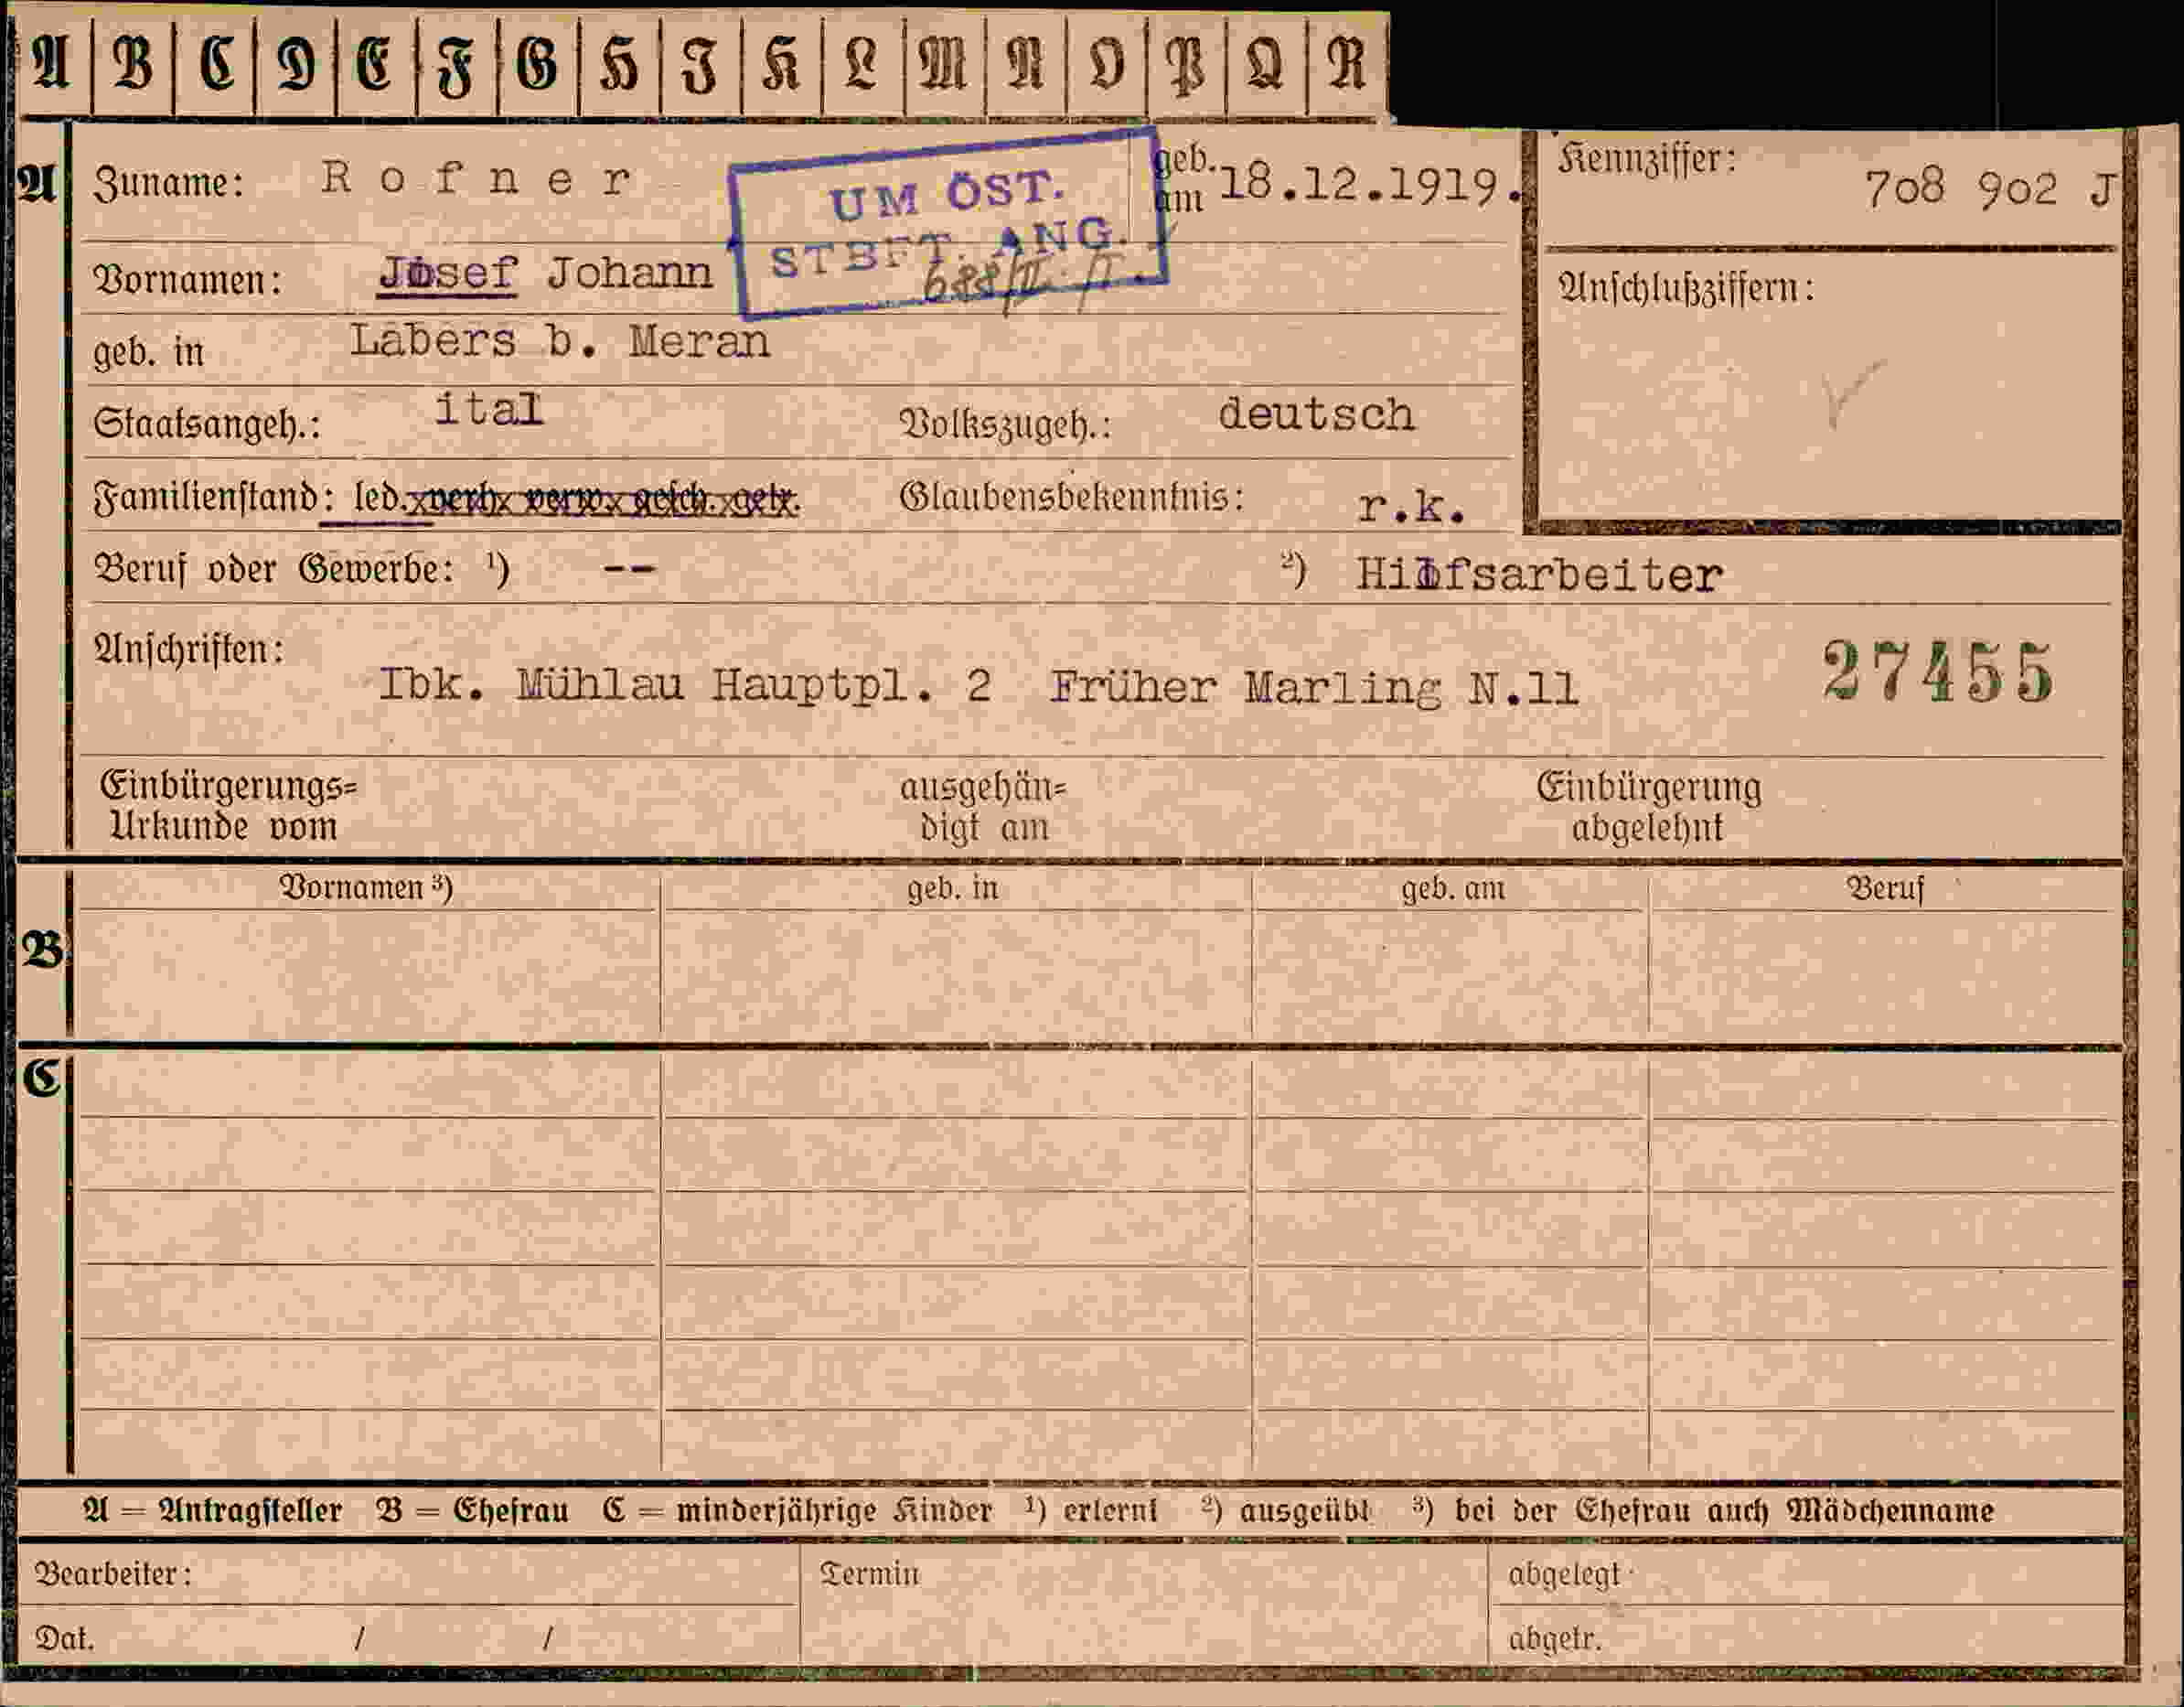 A B C D E F G H I K L M N O P Q R
A Zuname: Rofner
UM ÖST.
STBFT. ANG.
688/II.
geb. am 18.12.1919.
Kennziffer: 708 902 J
Vornamen: Josef Johann
Anschlußziffern:
geb. in Labers b. Meran
Staatsangeh.: ital Volkszugeh.: deutsch
Familienstand: led. verh. verw. gesch. getr. Glaubensbekenntnis: r.k.
Beruf oder Gewerbe: ¹) -- ²) Hilfsarbeiter
Anschriften:
Ibk. Mühlau Hauptpl. 2 Früher Marling N.11
27455
Einbürgerungs=
Urkunde vom
ausgehän=
digt am
Einbürgerung
abgelehnt
Vornamen ³) geb. in geb. am Beruf
B
C
A = Antragsteller B = Ehefrau C = minderjährige Kinder ¹) erlernt ²) ausgeübt ³) bei der Ehefrau auch Mädchenname
Bearbeiter: Termin abgelegt
Dat. / / abgetr.